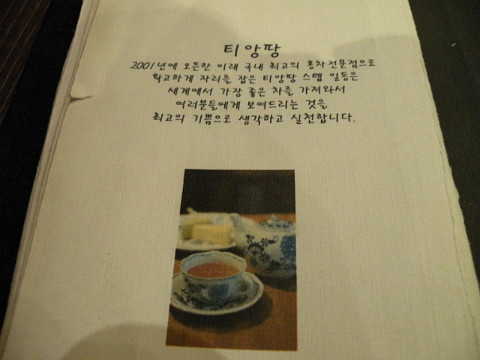 티앙팡
2001년에 오픈한 이래 국내 최고의 홍차전문점으로
확고하게 자리를 잡은 티앙팡 스텝 일동은
세계에서 가장 좋은 차를 가져와서
여러분들에게 보여드리는 것을
최고의 기쁨으로 생각하고 실천합니다.